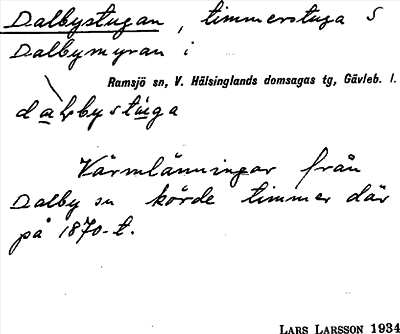 Dalbystugan, timmerstuga S
Dalbymyran i
Ramsjö sn, V. Hälsinglands domsagas tg, Gävleb. l.
dalbystuga
Värmlänningar från
Dalby sn körde timmer där
på 1870-t.
LARS LARSSON 1934